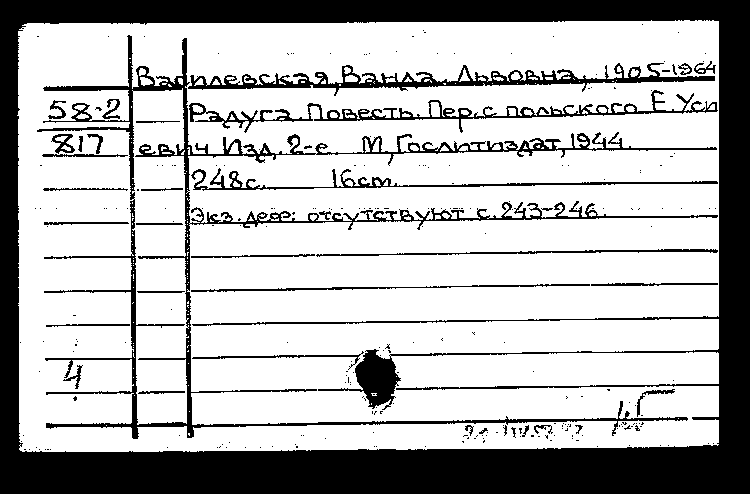 Василевская, Ванда Львовна, 1905-1964
58-2 Радуга. Повесть. Пер. с польского Е. Уси
817 евич. Изд. 2-е. М., Гослитиздат, 1944.
248с. 16см.
Экз. деф: отсутствуют с. 243-246.
4